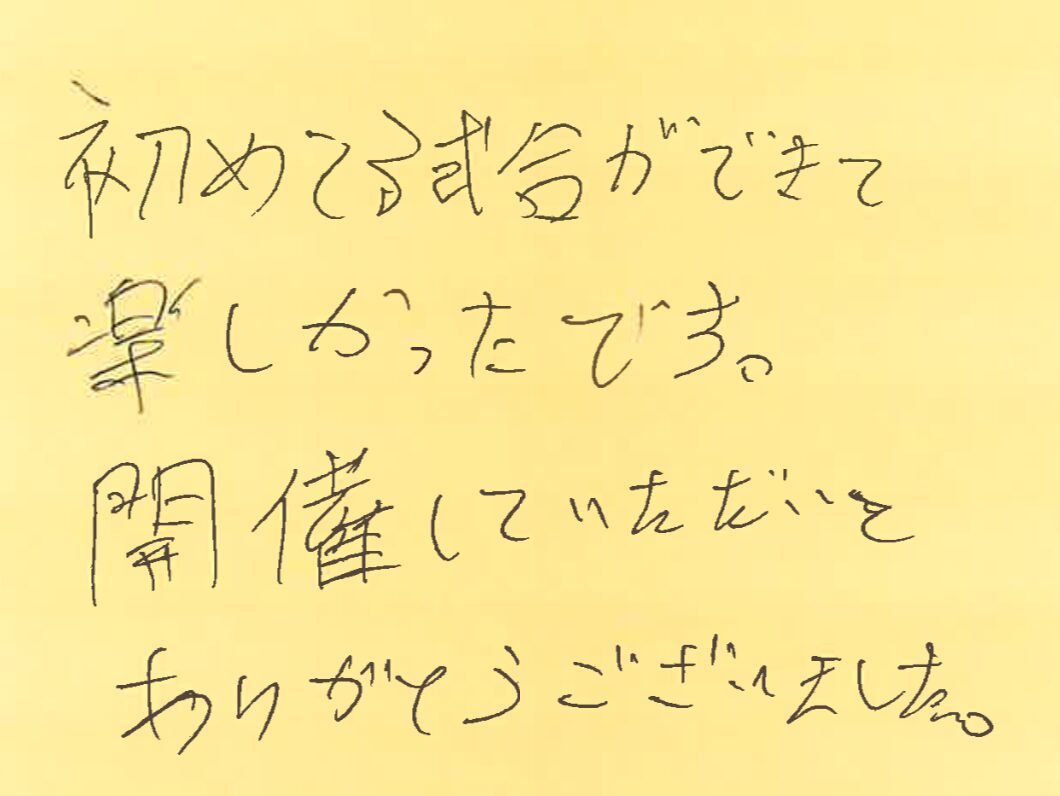 初めて試合ができて
楽しかったです。
開催していただいて
ありがとうございました。